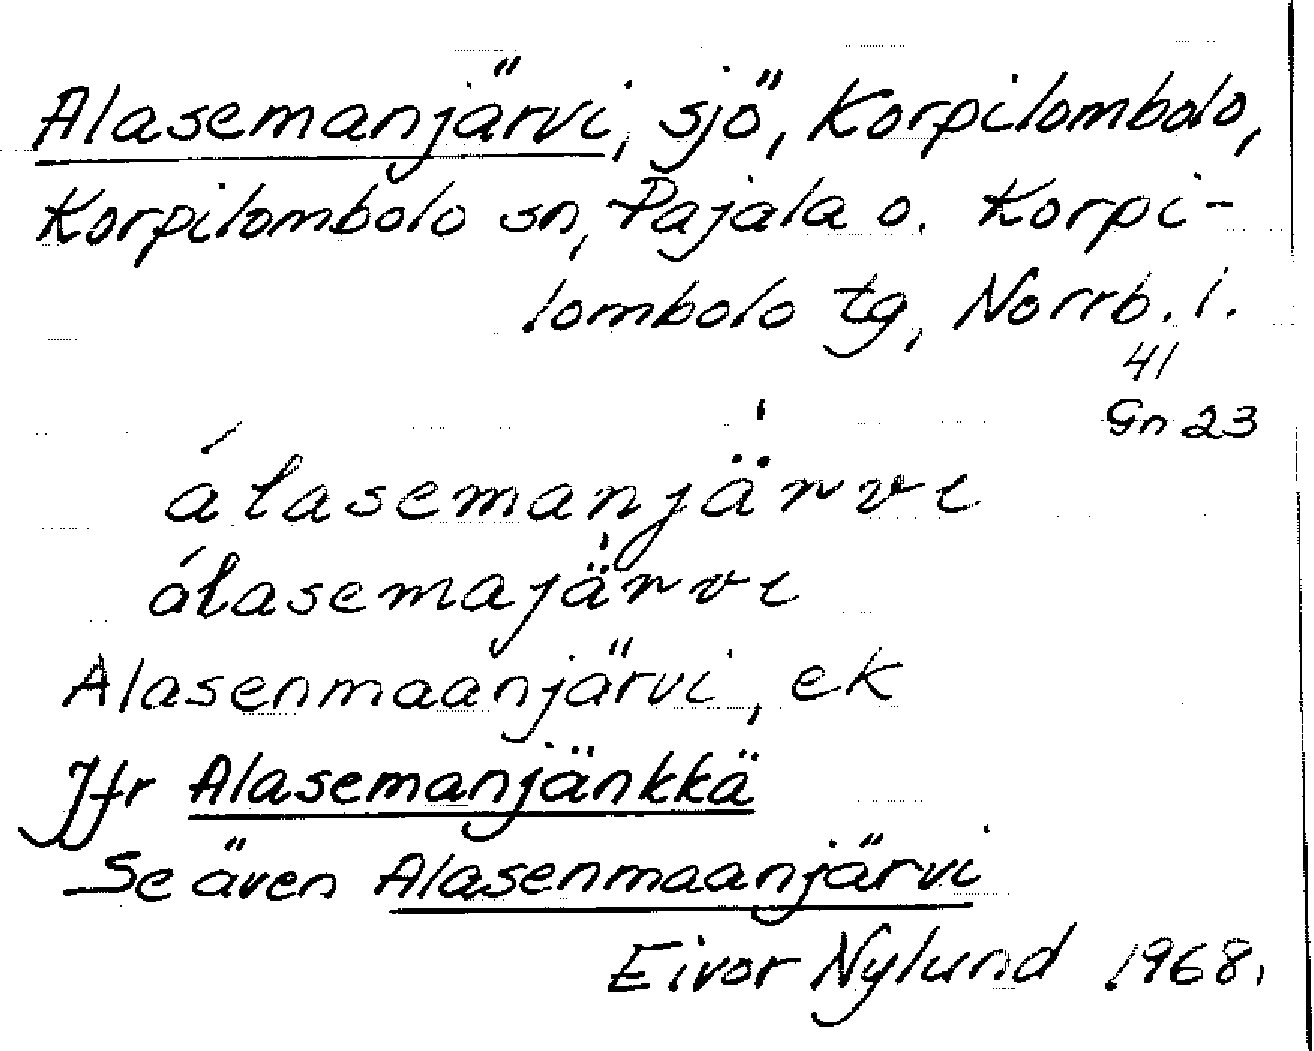 Alasemanjärvi, sjö, Korpilombolo,
Korpilombolo sn, Pajala o. Korpi-
lombolo tg, Norrb. l.
41
Gn 23
álasemanjä̀rvi
álasemajä̀rvi
Alasenmaanjärvi, ek
Jfr Alasemanjänkkä
Se även Alasenmaanjärvi
Eivor Nylund 1968.